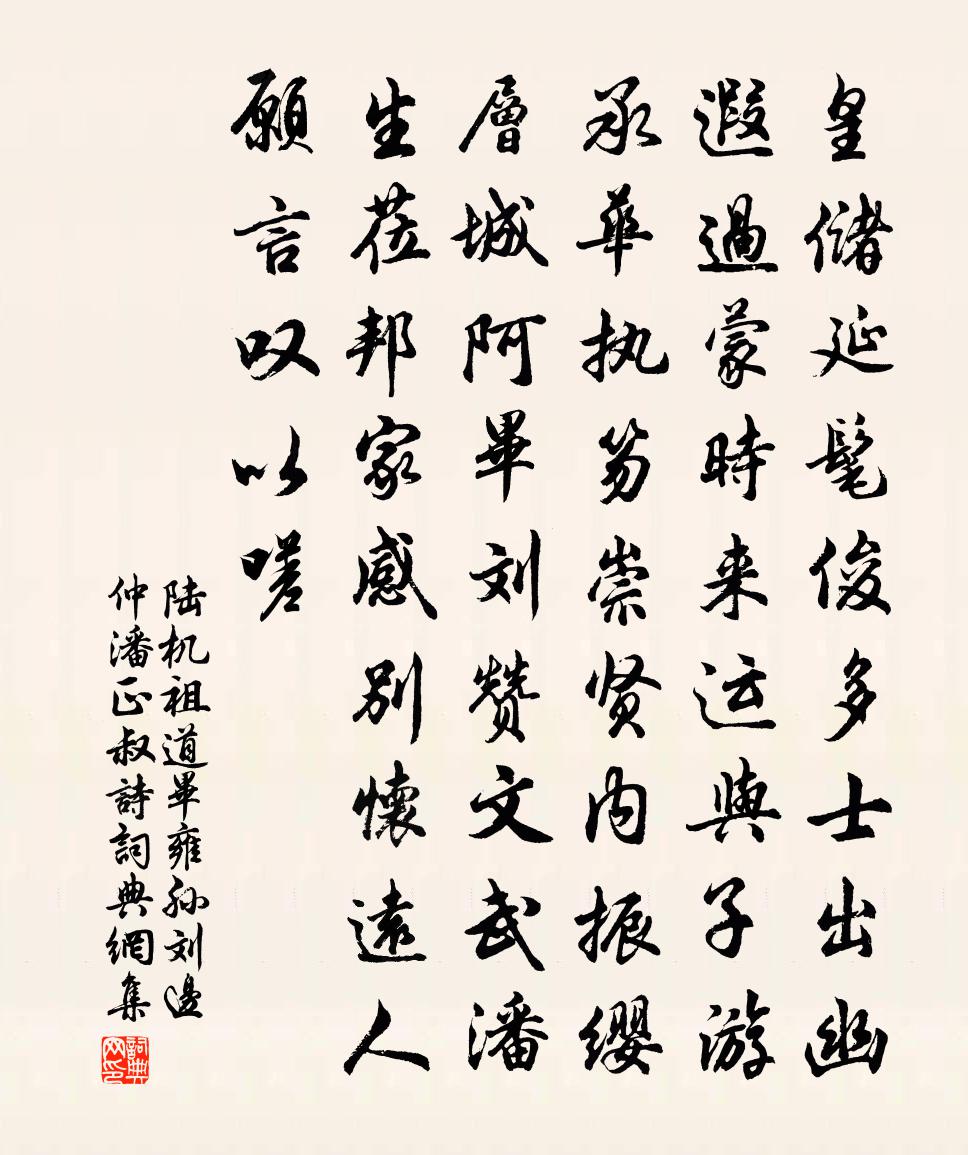 皇储延髦俊多士出幽
遐過蒙時来运與子游
承華执笏崇贤内振缨
層城阿畢刘赞文武潘
生莅邦家感别懷遠人
願言叹以嗟
陆机祖道畢雍孙刘邊
仲潘正叔詩詞典網集